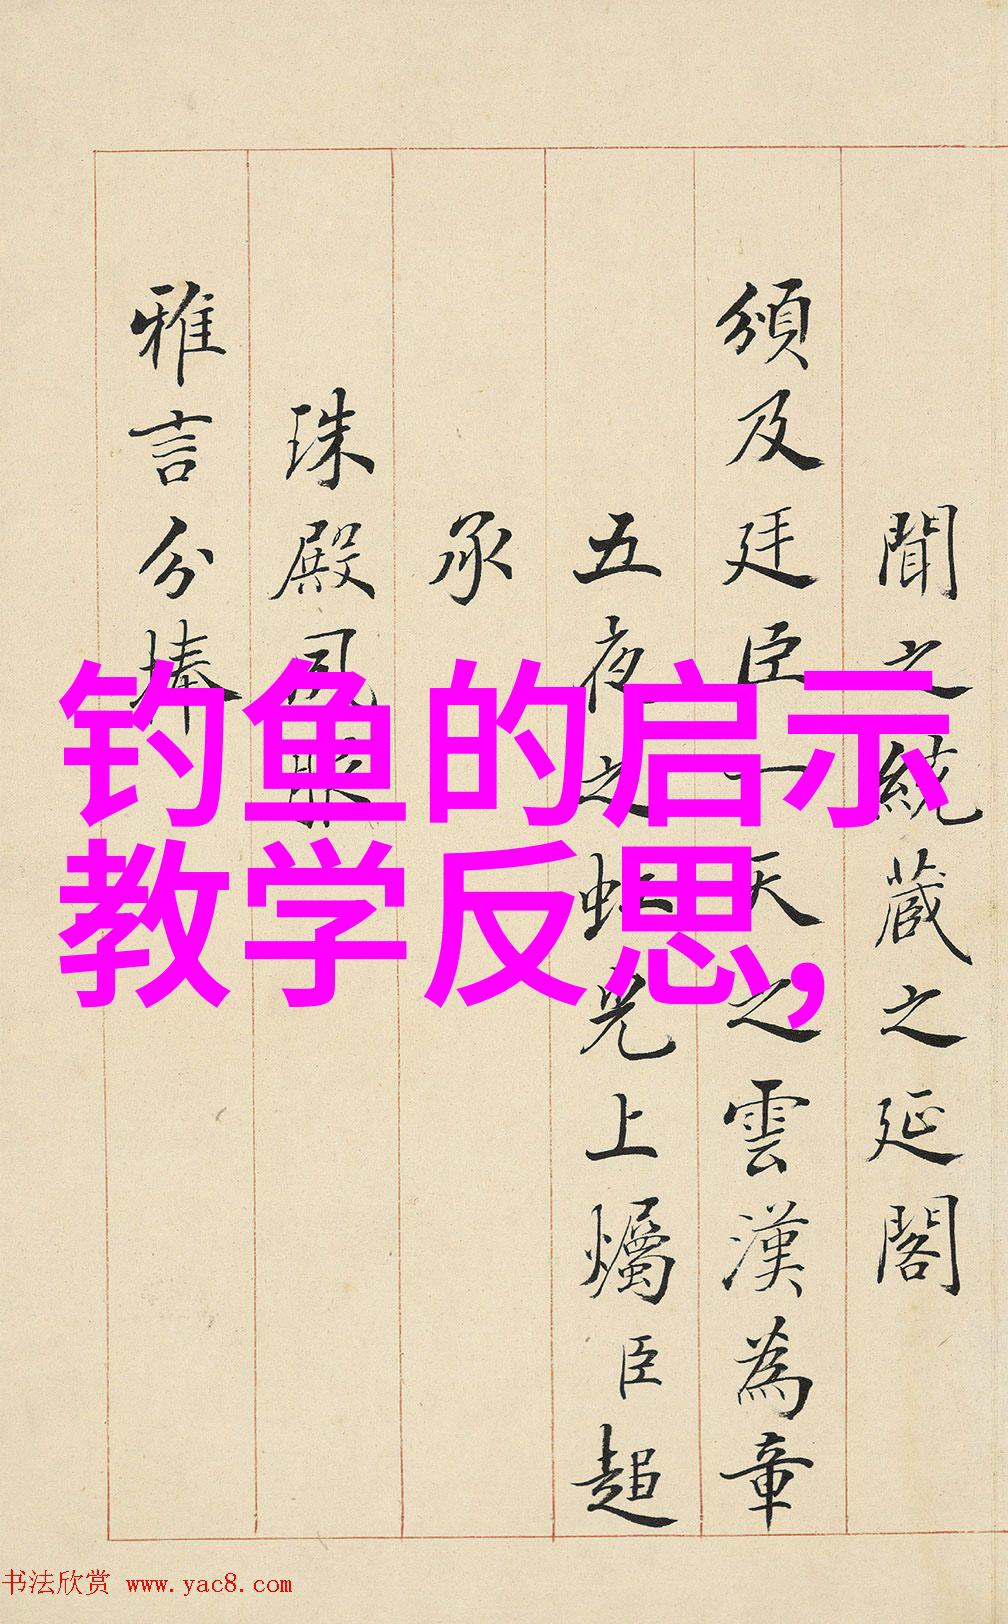 聞之統蔵之延閣
頒及廷臣一天之雲漢為章
五夜之虹光上燭臣趙
承
珠殿夙
雅言分捧
钓鱼的启示
教学反思,
书法欣赏 www.yac8.com